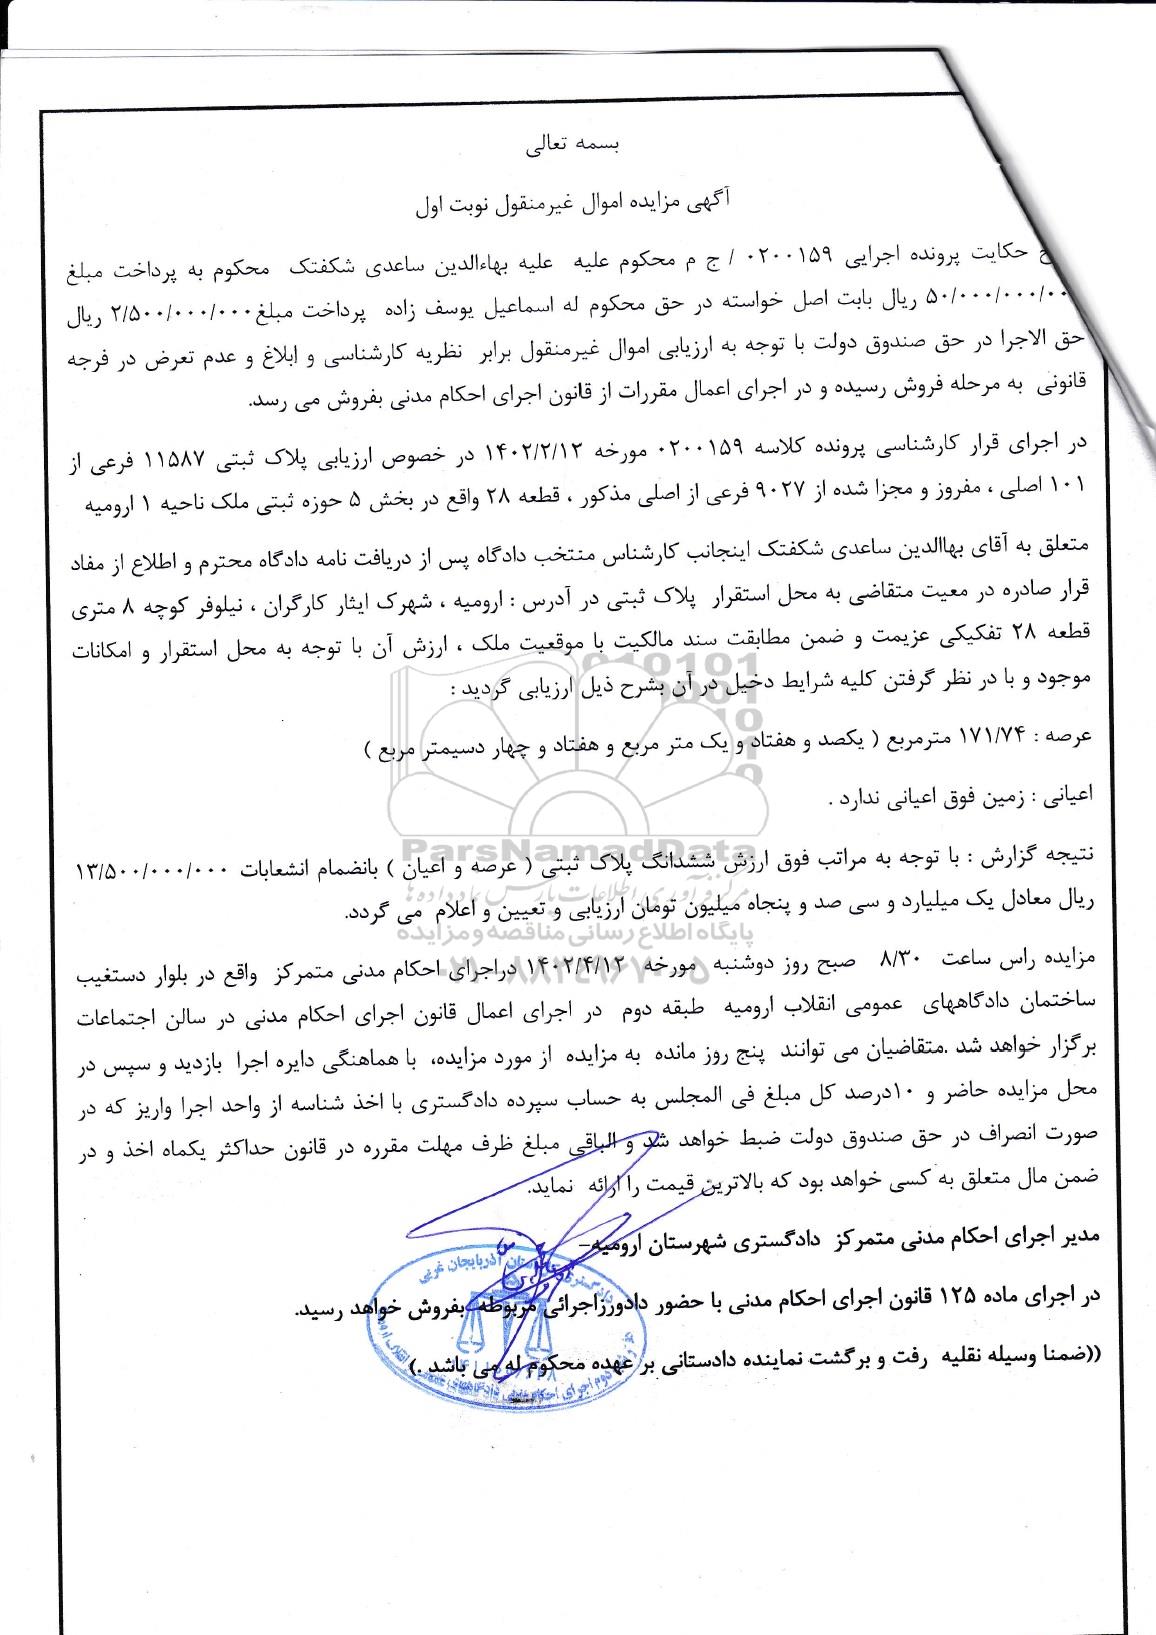 بسمه تعالی
آگهی مزایده اموال غیرمنقول نوبت اول
حکایت پرونده اجرایی ۰۲۰۰۱۵۹ / ج م محکوم علیه علیه بهاءالدین ساعدی شکفتک محکوم به پرداخت مبلغ
۵۰/۰۰۰/۰۰۰/۰۰۰ ریال بابت اصل خواسته در حق محکوم له اسماعیل یوسف زاده پرداخت مبلغ ۲/۵۰۰/۰۰۰/۰۰۰ ریال
حق الاجرا در حق صندوق دولت با توجه به ارزیابی اموال غیرمنقول برابر نظریه کارشناسی و ابلاغ و عدم تعرض در فرجه
قانونی به مرحله فروش رسیده و در اجرای اعمال مقررات از قانون اجرای احکام مدنی بفروش می رسد.
در اجرای قرار کارشناسی پرونده کلاسه ۰۲۰۰۱۵۹ مورخه ۱۴۰۲/۲/۱۲ در خصوص ارزیابی پلاک ثبتی ۱۱۵۸۷ فرعی از
۱۰۱ اصلی ، مفروز و مجزا شده از ۹۰۲۷ فرعی از اصلی مذکور ، قطعه ۲۸ واقع در بخش ۵ حوزه ثبتی ملک ناحیه ۱ ارومیه
متعلق به آقای بهاالدین ساعدی شکفتک اینجانب کارشناس منتخب دادگاه پس از دریافت نامه دادگاه محترم و اطلاع از مفاد
قرار صادره در معیت متقاضی به محل استقرار پلاک ثبتی در آدرس : ارومیه ، شهرک ایثار کارگران ، نیلوفر کوچه ۸ متری
قطعه ۲۸ تفکیکی عزیمت و ضمن مطابقت سند مالکیت با موقعیت ملک ، ارزش آن با توجه به محل استقرار و امکانات
موجود و با در نظر گرفتن کلیه شرایط دخیل در آن بشرح ذیل ارزیابی گردید :
عرصه : ۱۷۱/۷۴ مترمربع ( یکصد و هفتاد و یک متر مربع و هفتاد و چهار دسیمتر مربع )
اعیانی : زمین فوق اعیانی ندارد .
ParsNamadData
نتیجه گزارش : با توجه به مراتب فوق ارزش ششدانگ پلاک ثبتی ( عرصه و اعیان ) بانضمام انشعابات ۱۳/۵۰۰/۰۰۰/۰۰۰
مرکز فرآوری اطلاعات پارس نماد داده ها
ریال معادل یک میلیارد و سی صد و پنجاه میلیون تومان ارزیابی و تعیین و اعلام می گردد.
پایگاه اطلاع رسانی مناقصه و مزایده
مزایده راس ساعت ۸/۳۰ صبح روز دوشنبه مورخه ۱۴۰۲/۴/۱۲ دراجرای احکام مدنی متمرکز واقع در بلوار دستغیب
ساختمان دادگاههای عمومی انقلاب ارومیه طبقه دوم در اجرای اعمال قانون اجرای احکام مدنی در سالن اجتماعات
برگزار خواهد شد .متقاضیان می توانند پنج روز مانده به مزایده از مورد مزایده، با هماهنگی دایره اجرا بازدید و سپس در
محل مزایده حاضر و ۱۰درصد کل مبلغ فی المجلس به حساب سپرده دادگستری با اخذ شناسه از واحد اجرا واریز که در
صورت انصراف در حق صندوق دولت ضبط خواهد شد و الباقی مبلغ ظرف مهلت مقرره در قانون حداکثر یکماه اخذ و در
ضمن مال متعلق به کسی خواهد بود که بالاترین قیمت را ارائه نماید.
مدیر اجرای احکام مدنی متمرکز دادگستری شهرستان ارومیه–
در اجرای ماده ۱۲۵ قانون اجرای احکام مدنی با حضور دادورزاجرائی مربوطه بفروش خواهد رسید.
((ضمنا وسیله نقلیه رفت و برگشت نماینده دادستانی بر عهده محکوم له می باشد .)